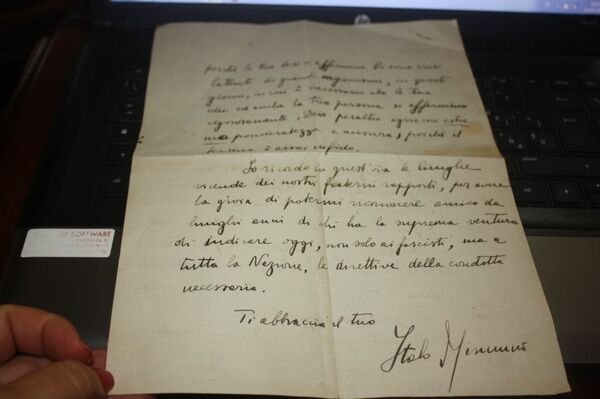 perchè le tue tesi si affermino. Vi sono crisi
latenti di grandi organismi, in questi
giorni, in cui è necessario che le tue
idee ed anche la tua persona si affermino
vigorosamente. Devi peraltro agire con estre
ma ponderatezza e misura, poichè il
terreno è assai infido.
Io ricordo in quest'ora le lunghe
vicende dei nostri fraterni rapporti, per avere
la gioia di potermi riconoscere amico da
lunghi anni di chi ha la suprema ventura
di indicare oggi, non solo ai fascisti, ma a
tutta la Nazione, le direttive della condotta
necessaria.
Ti abbraccia il tuo
Italo
SOFTWARE
hp